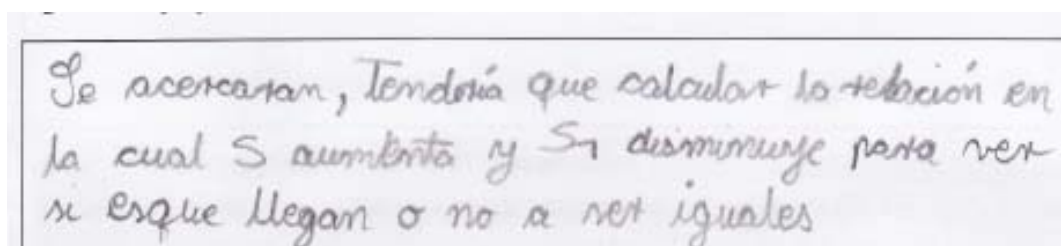 Se acercaran, Tendría que calcular la relación en
la cual S aumenta y S1 disminuye para ver
si esque llegan o no a ser iguales